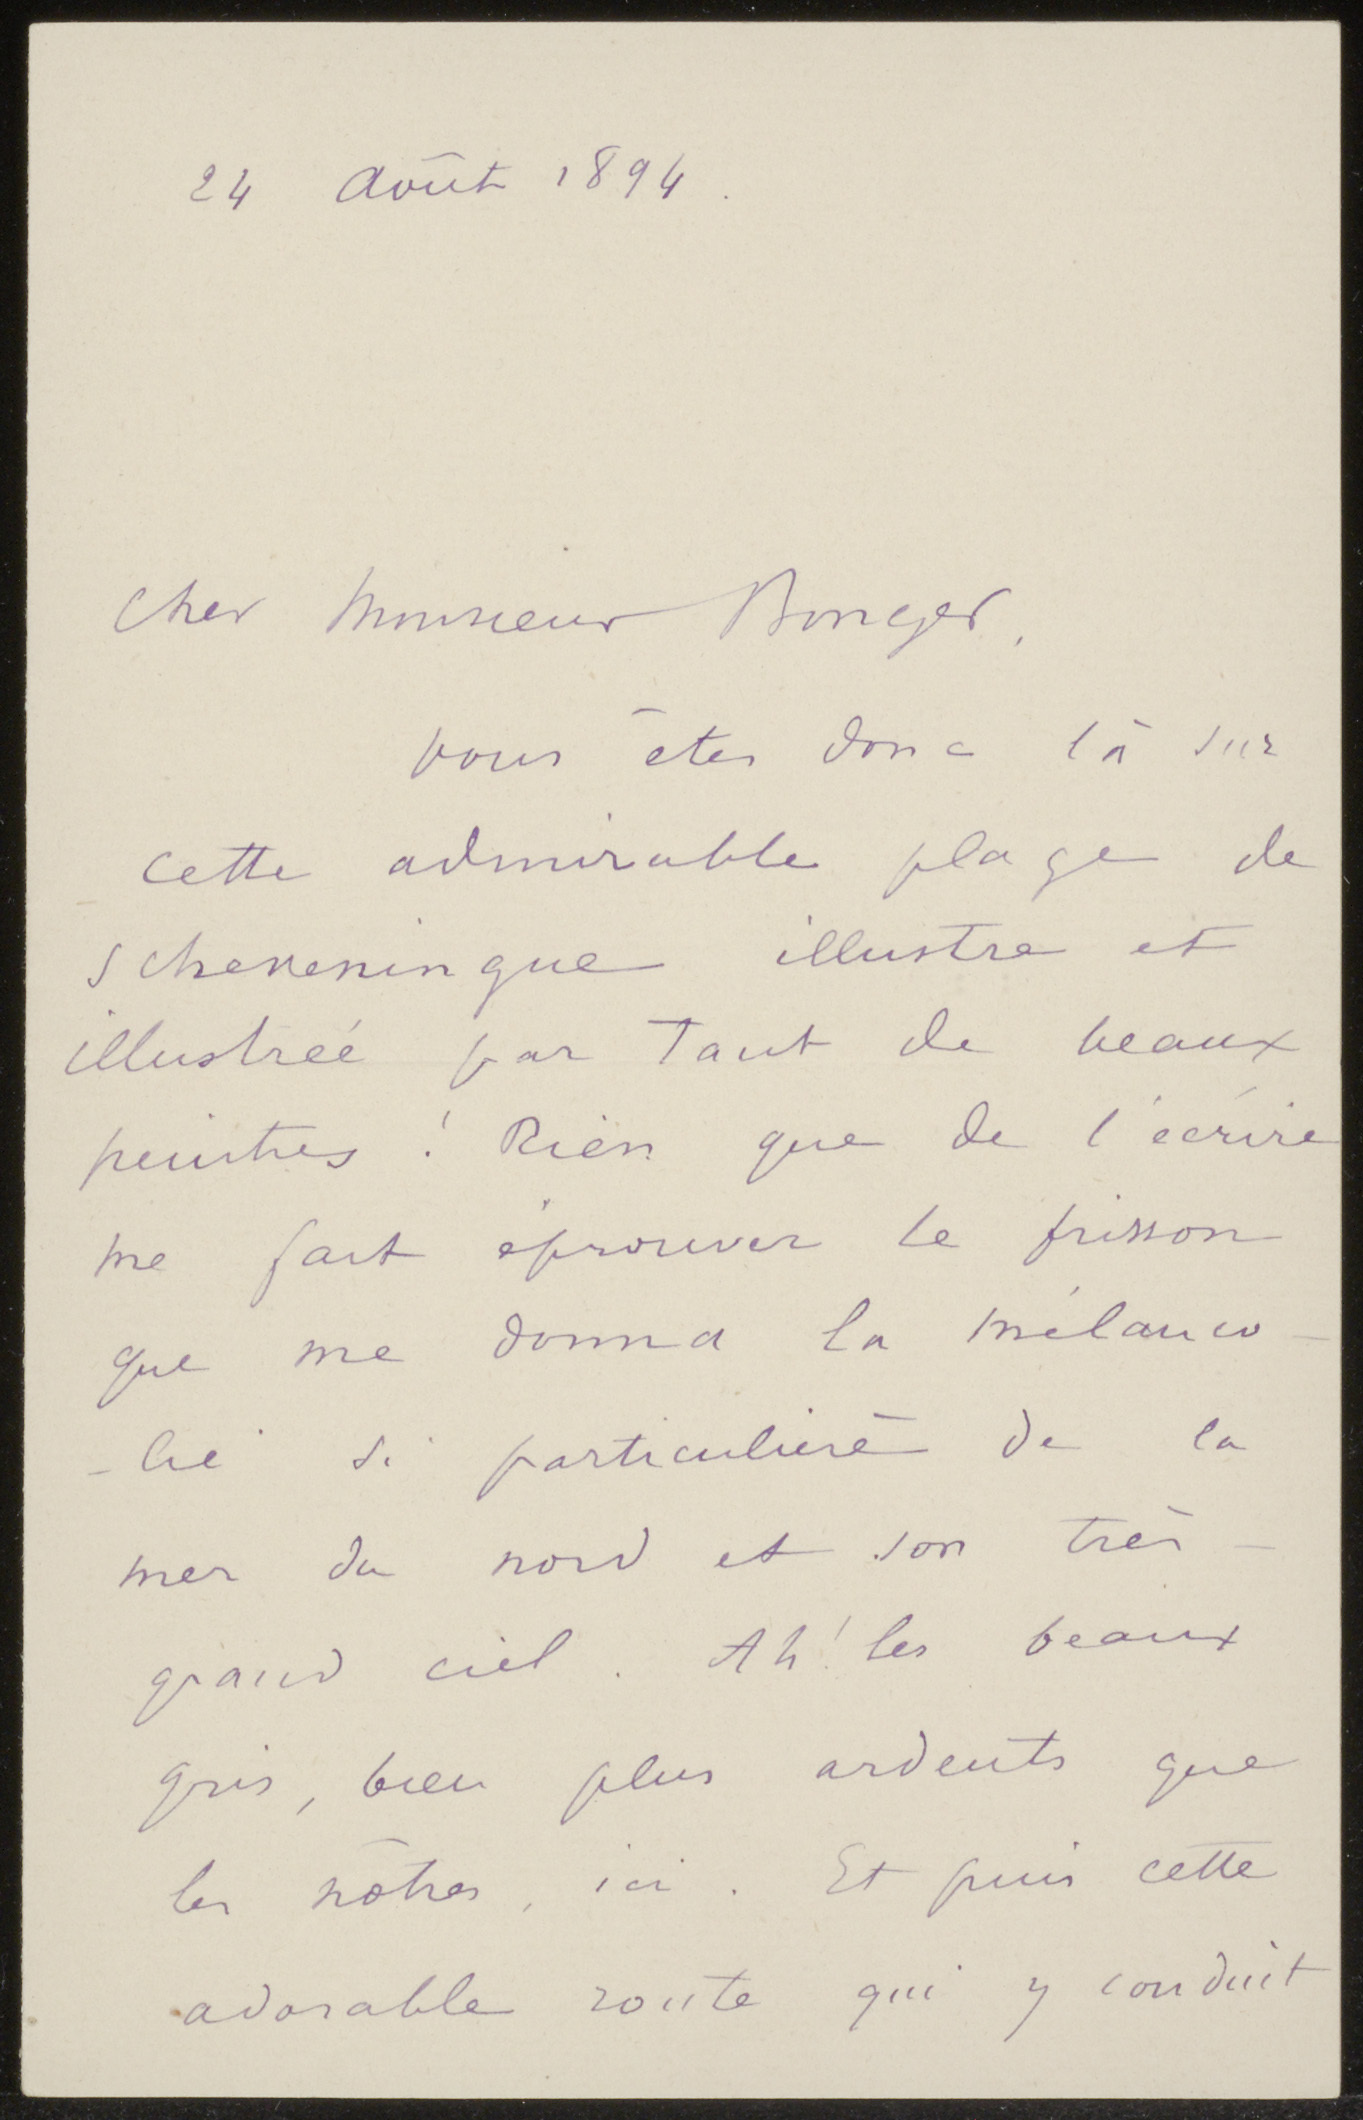 24 Août 1894.
Cher Monsieur Bonger,
vous êtes donc là sur
cette admirable plage de
scheveningue illustre et
illustrée par tant de beaux
peintres ! Rien que de l'écrire
me fait éprouver le frisson
que me donna la mélanco-
-lie si particulière de la
mer du nord et son très-
grand ciel. Ah! les beaux
gris, bien plus ardents que
les nôtres, ici. Et puis cette
adorable route qui y conduit